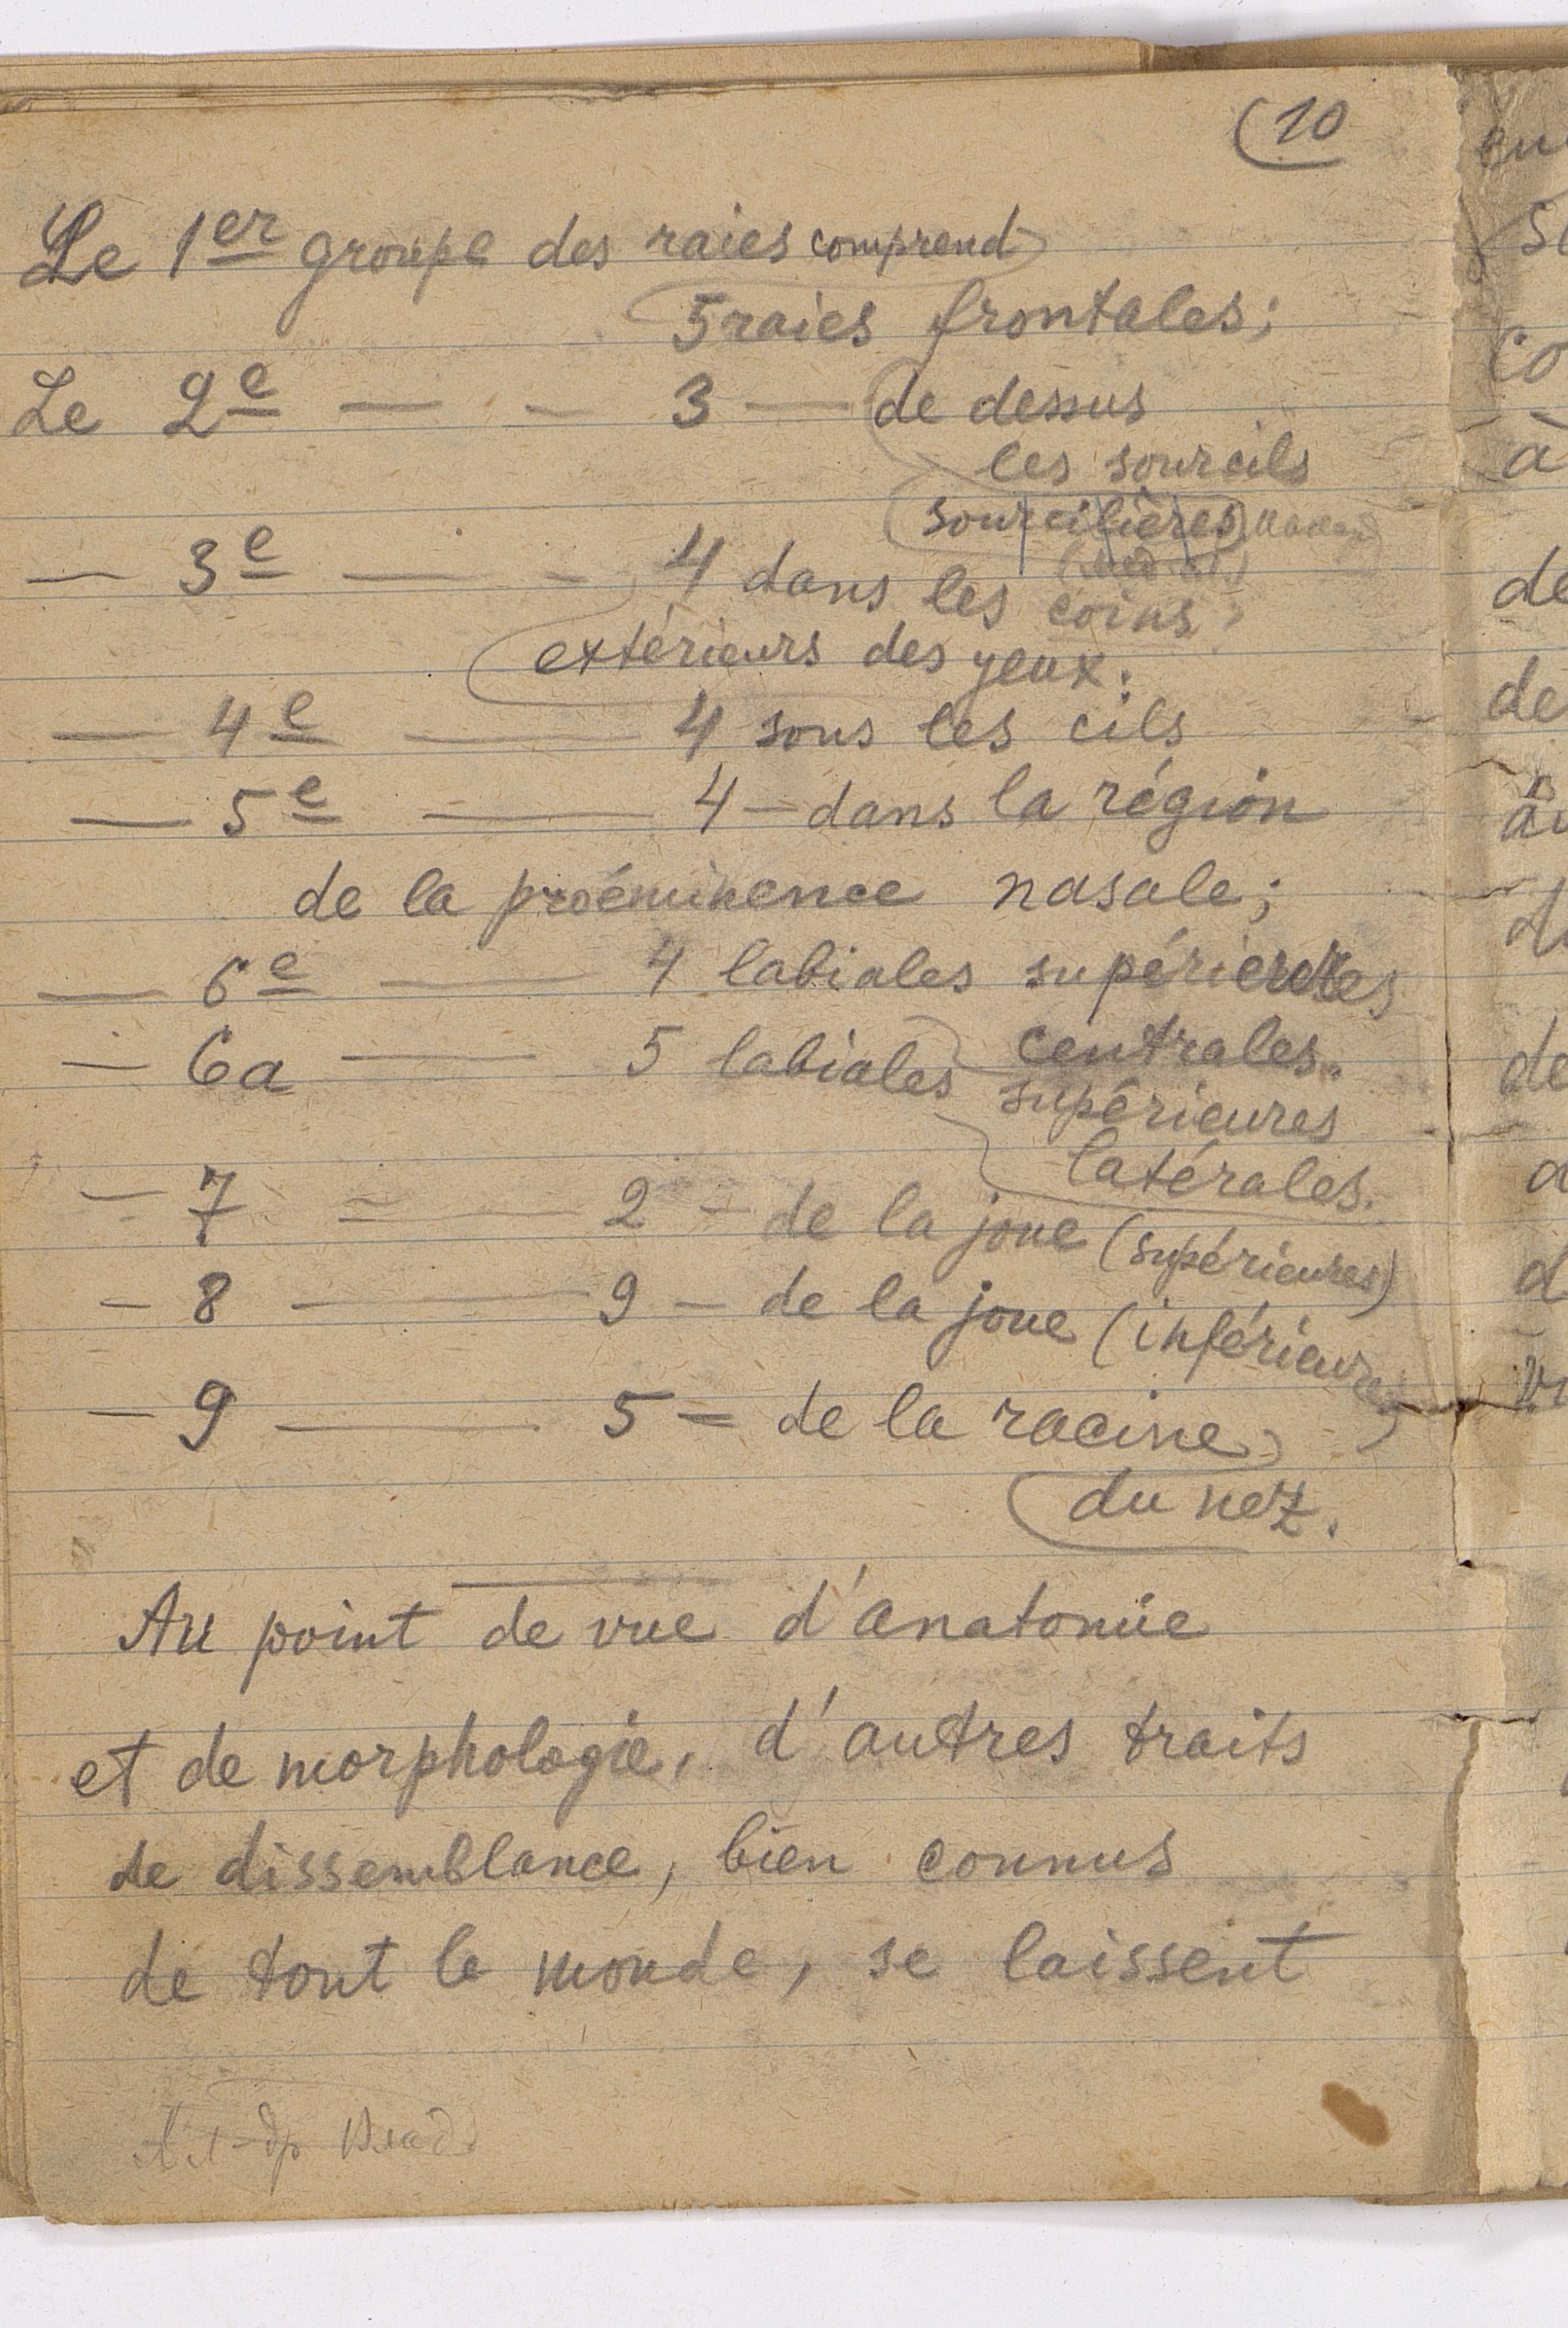 (10
Le 1er groupe des raies comprend
5 raies frontales;
Le 2e — - 3 — de dessus
les sourcils
sourcilières
— 3e — - 4 dans les coins
extérieurs des yeux.
— 4e — 4 sous les cils
— 5e — 4 — dans la région
de la proéminence nasale;
— 6e — 4 labiales supérieures
centrales.
— 6a — 5 labiales
supérieures
latérales.
— 7 - — 2 - de la joue (supérieures)
— 8 — 9 — de la joue (inférieures)
— 9 — 5 = de la racine
du nez.
Au point de vue d'anatomie
et de morphologie, d'autres traits
de dissemblance, bien connus
de tout le monde, se laissent